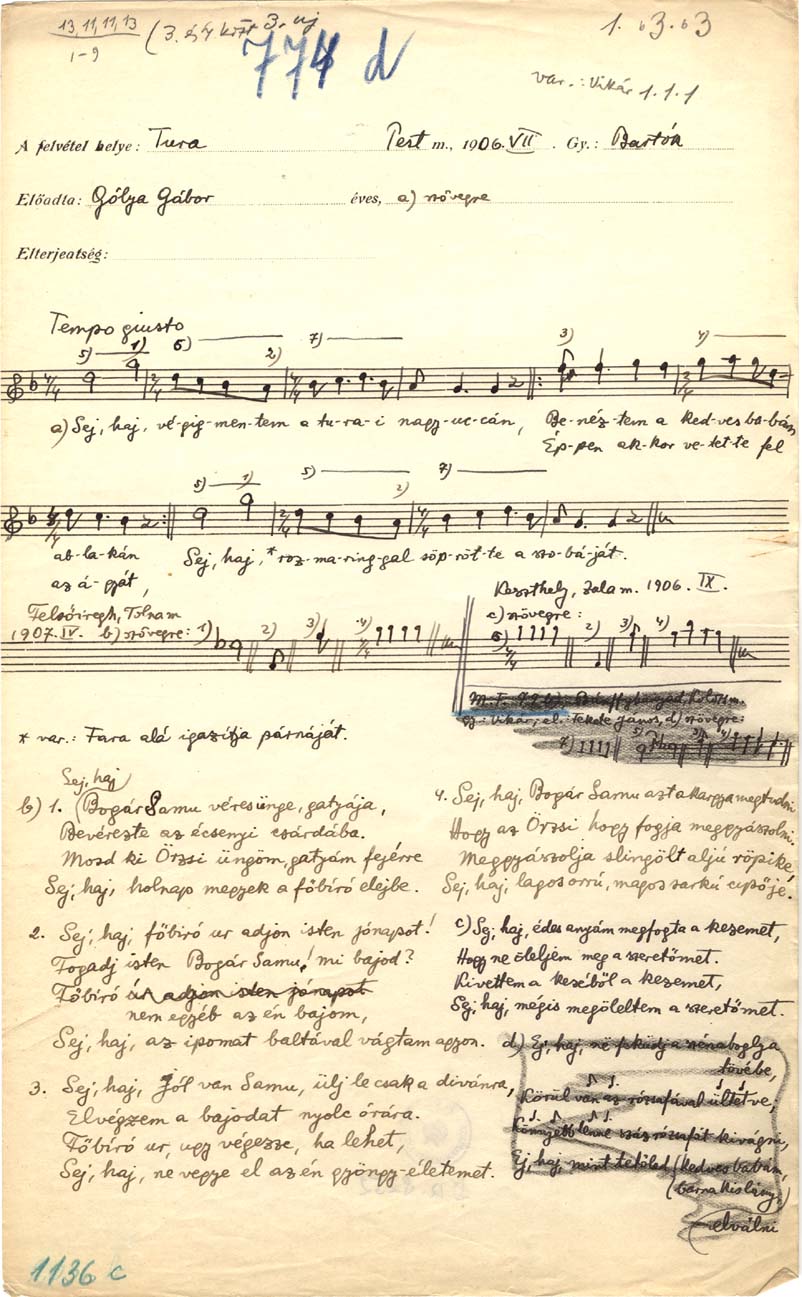 13, 11, 11, 13
1-9
(3. és 4 közt 3. uj
774 d
1. 63. 63
var.: Vikár 1.1.1
A felvétel helye: Tura Pest m., 1906. VII. Gy.: Bartók
Előadta: Gólya Gábor éves, a) szövegre
Elterjedtség:
Tempo giusto
5) 1) 6) 2) 7) 3) 4)
a) Sej, haj, vé-gig-men-tem a tu-ra-i nagy-uc-cán, Be-néz-tem a ked-ves ba-bám
Ép-pen ak-kor ve-tet-te fel
5) 1) 5) 2) 7)
ab-la-kán Sej, haj, * roz-ma-ring-gal söp-röt-te a szo-bá-ját.
az á-gyát,
Keszthely, Zala m. 1906. IX.
Felsőiregh, Tolnam c) szövegre:
1907. IV. b) szövegre: 1) 2) 3) 4) 6) 2) 3) 4)
M. F.
Gy: Vikár, el.: Fekete János, d) szövegre:
* var.: Fara alá igazítja párnáját.
Sej, haj
b) 1. (Bogár Samu véres ünge, gatyája,
Bevérezte az écsenyi csárdába.
Mosd ki Örzsi üngöm, gatyám fejérre
Sej, haj, holnap megyek a főbíró elejbe.
2. Sej, haj, főbíró ur adjon isten jónapot!
Fogadj isten Bogár Samu! mi bajod?
Főbíró úr adjon isten jónapot
nem egyéb az én bajom,
Sej, haj, az ipomat baltával vágtam agyon.
3. Sej, haj, Jól van Samu, ülj le csak a divánra,
Elvégzem a bajodat nyolc órára.
Főbíró ur, ugy végezze, ha lehet,
Sej, haj, ne vegye el az én gyöngy-életemet.
4. Sej, haj, Bogár Samu azt akarja megtudni
Hogy az Örzsi hogy fogja meggyászolni.
Meggyászolja slingölt aljú röpike,
Sej, haj, lagos orrú, magos sarkú cipője.
c) Sej, haj, édes anyám megfogta a kezemet,
Hogy ne öleljem meg a szeretőmet.
Kivettem a kezéből a kezemet,
Sej, haj, mégis megöleltem a szeretőmet.
d) Ej, haj, ne feküdj a szénaboglya
tövébe,
Körül van az rózsafával ültetve;
Könnyebb lenne száz rózsafát kivágni,
Ej, haj mint tetőled (kedves babám,
(barna kislány)
elválni
1136 c